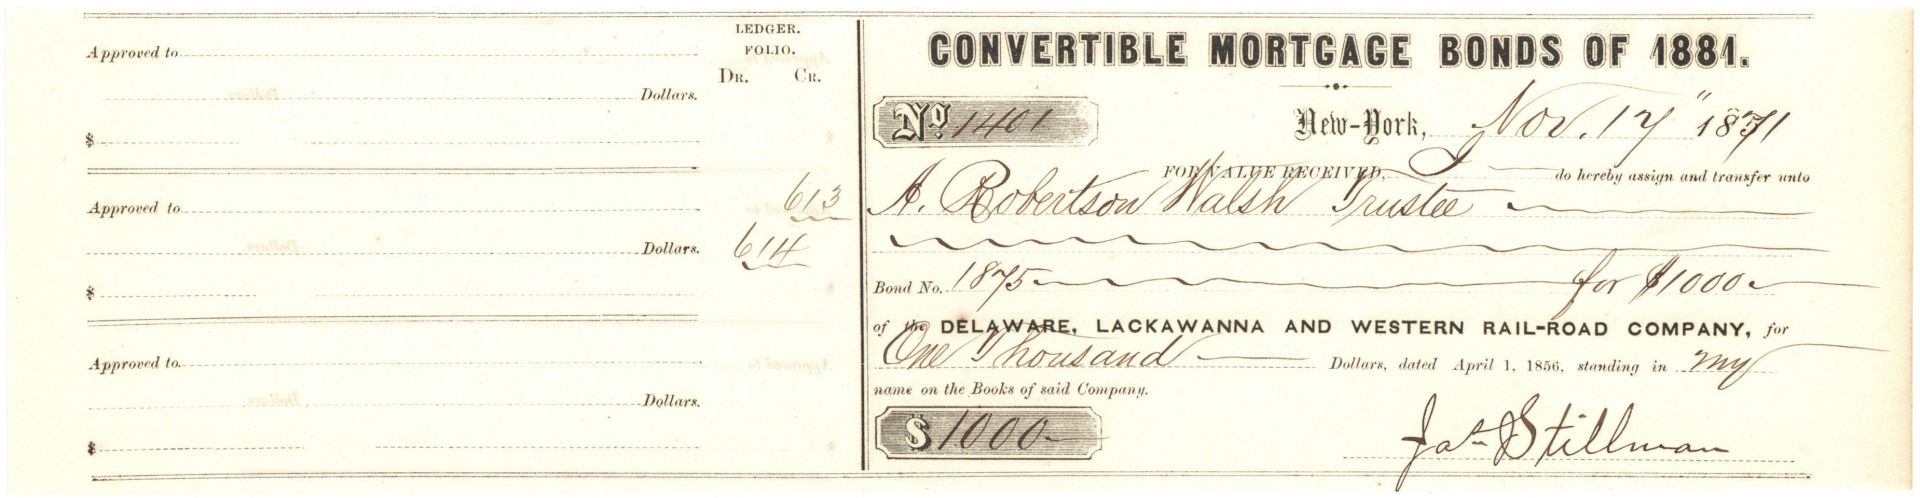 LEDGER.
FOLIO.
DR. CR.
Approved to
Dollars.
$
613
Approved to
Dollars. 614
$
Approved to
Dollars.
$
CONVERTIBLE MORTGAGE BONDS OF 1881.
No. 1401 New-York, Nov. 17" 1871
FOR VALUE RECEIVED, I do hereby assign and transfer unto
A. Robertson Walsh Trustee
Bond No. 1875 for $1000
of the DELAWARE, LACKAWANNA AND WESTERN RAIL-ROAD COMPANY, for
One Thousand Dollars, dated April 1, 1856, standing in my
name on the Books of said Company.
$1000
Jas Stillman